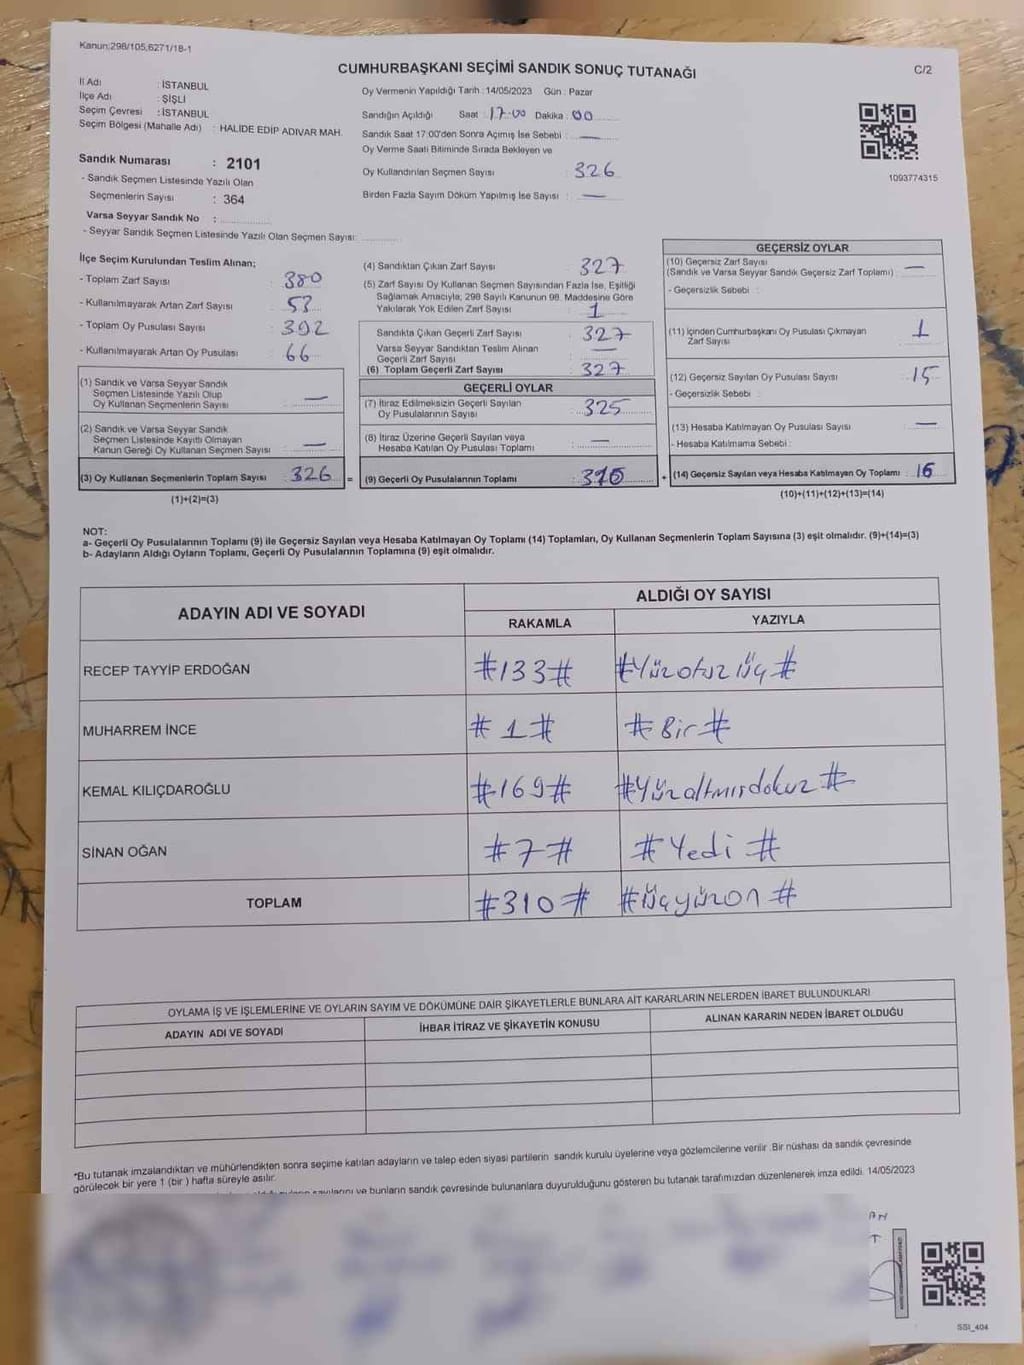 Kanun;298/105,6271/18-1
CUMHURBAŞKANI SEÇİMİ SANDIK SONUÇ TUTANAĞI
C/2
İl Adı : İSTANBUL
İlçe Adı : ŞİŞLİ
Seçim Çevresi : İSTANBUL
Seçim Bölgesi (Mahalle Adı) : HALİDE EDİP ADIVAR MAH.
Sandık Numarası : 2101
- Sandık Seçmen Listesinde Yazılı Olan
Seçmenlerin Sayısı : 364
Varsa Seyyar Sandık No :
- Seyyar Sandık Seçmen Listesinde Yazılı Olan Seçmen Sayısı:
Oy Vermenin Yapıldığı Tarih : 14/05/2023 Gün : Pazar
Sandığın Açıldığı Saat : 17:00 Dakika : 00
Sandık Saat 17:00'den Sonra Açımış İse Sebebi : —
Oy Verme Saati Bitiminde Sırada Bekleyen ve
Oy Kullandırılan Seçmen Sayısı : 326
Birden Fazla Sayım Döküm Yapılmış İse Sayısı : —
1093774315
İlçe Seçim Kurulundan Teslim Alınan;
- Toplam Zarf Sayısı : 380
- Kullanılmayarak Artan Zarf Sayısı : 53
- Toplam Oy Pusulası Sayısı : 392
- Kullanılmayarak Artan Oy Pusulası : 66
(1) Sandık ve Varsa Seyyar Sandık
Seçmen Listesinde Yazılı Olup
Oy Kullanan Seçmenlerin Sayısı : —
(2) Sandık ve Varsa Seyyar Sandık
Seçmen Listesinde Kayıtlı Olmayan
Kanun Gereği Oy Kullanan Seçmen Sayısı : —
(3) Oy Kullanan Seçmenlerin Toplam Sayısı : 326 =
(1)+(2)=(3)
(4) Sandıktan Çıkan Zarf Sayısı : 327
(5) Zarf Sayısı Oy Kullanan Seçmen Sayısından Fazla İse, Eşitliği
Sağlamak Amacıyla; 298 Sayılı Kanunun 98. Maddesine Göre
Yakılarak Yok Edilen Zarf Sayısı : 1
Sandıkta Çıkan Geçerli Zarf Sayısı : 327
Varsa Seyyar Sandıktan Teslim Alınan
Geçerli Zarf Sayısı : —
(6) Toplam Geçerli Zarf Sayısı : 327
GEÇERLİ OYLAR
(7) İtiraz Edilmeksizin Geçerli Sayılan
Oy Pusulalarının Sayısı : 325
(8) İtiraz Üzerine Geçerli Sayılan veya
Hesaba Katılan Oy Pusulası Toplamı : —
(9) Geçerli Oy Pusulalarının Toplamı : 310 +
GEÇERSİZ OYLAR
(10) Geçersiz Zarf Sayısı
(Sandık ve Varsa Seyyar Sandık Geçersiz Zarf Toplamı) : —
- Geçersizlik Sebebi :
(11) İçinden Cumhurbaşkanı Oy Pusulası Çıkmayan
Zarf Sayısı : 1
(12) Geçersiz Sayılan Oy Pusulası Sayısı : 15
- Geçersizlik Sebebi :
(13) Hesaba Katılmayan Oy Pusulası Sayısı : —
- Hesaba Katılmama Sebebi :
(14) Geçersiz Sayılan veya Hesaba Katılmayan Oy Toplamı : 16
(10)+(11)+(12)+(13)=(14)
NOT:
a- Geçerli Oy Pusulalarının Toplamı (9) ile Geçersiz Sayılan veya Hesaba Katılmayan Oy Toplamı (14) Toplamları, Oy Kullanan Seçmenlerin Toplam Sayısına (3) eşit olmalıdır. (9)+(14)=(3)
b- Adayların Aldığı Oyların Toplamı, Geçerli Oy Pusulalarının Toplamına (9) eşit olmalıdır.
ADAYIN ADI VE SOYADI
ALDIĞI OY SAYISI
RAKAMLA YAZIYLA
RECEP TAYYİP ERDOĞAN #133# #Yüzotuz üç#
MUHARREM İNCE #1# #Bir#
KEMAL KILIÇDAROĞLU #169# #Yüzaltmışdokuz#
SİNAN OĞAN #7# #Yedi#
TOPLAM #310# #Üçyüzon#
OYLAMA İŞ VE İŞLEMLERİNE VE OYLARIN SAYIM VE DÖKÜMÜNE DAİR ŞİKAYETLERLE BUNLARA AİT KARARLARIN NELERDEN İBARET BULUNDUKLARI
ADAYIN ADI VE SOYADI
İHBAR İTİRAZ VE ŞİKAYETİN KONUSU
ALINAN KARARIN NEDEN İBARET OLDUĞU
*Bu tutanak imzalandıktan ve mühürlendikten sonra seçime katılan adayların ve talep eden siyasi partilerin sandık kurulu üyelerine veya gözlemcilerine verilir .Bir nüshası da sandık çevresinde
görülecek bir yere 1 (bir ) hafta süreyle asılır.
sayılarını ve bunların sandık çevresinde bulunanlara duyurulduğunu gösteren bu tutanak tarafımızdan düzenlenerek imza edildi. 14/05/2023
SSI_404